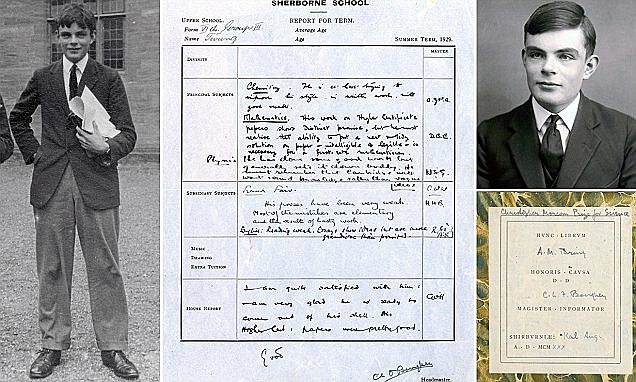 SHERBORNE SCHOOL
UPPER SCHOOL.
REPORT FOR TERM.
Form
Average Age
Name Turing
Age
SUMMER TERM, 1929.
MASTER
DIVINITY
PRINCIPAL SUBJECTS
Chemistry. He is at last trying to
improve his style in written work, with
good results.
Mathematics. His work on Higher Certificate
papers shows distinct promise, but he must
realise that ability to put a neat & tidy
solution on paper - intelligible & legible - is
necessary for a first-rate mathematician.
Physics
He has done some good work but
generally sets it down badly. He
must remember that Cambridge will
want sound knowledge rather than vague
ideas
SUBSIDIARY SUBJECTS
French Fair.
His proses have been very weak.
Most of the mistakes are elementary
and the result of hasty work.
English: Reading weak. Essays show ideas but are more
grandiose than
MUSIC
DRAWING
EXTRA TUITION
HOUSE REPORT
I am quite satisfied with him:
I am very glad he is ready to
come out of his shell. His
Higher Cert: papers were pretty good.
Good
Headmaster.
Christopher Morcom Prize for Science
HVNC · LIBRVM
A. M. Turing
HONORIS · CAVSA
D · D
C. L. F. Boughey
MAGISTER · INFORMATOR
SHIRBVRNIÆ:
A · D · MCMXXX